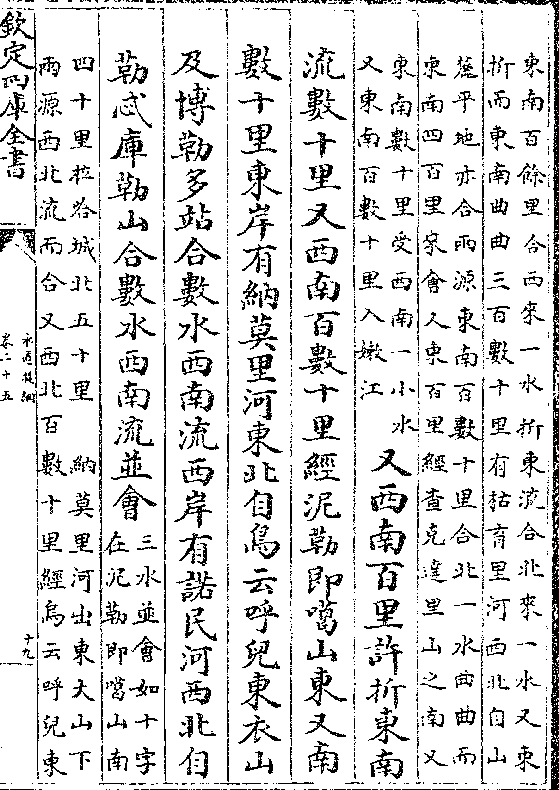 東南百餘里合西來一水折東流合北來一水又東
折而東南曲曲三百數十里有詁育里河西北自山
麓平地亦合兩源東南百數十里合北一水曲曲而
東南四百里來會又東百里經查克達里山之南又
東南數十里受西南一小水
又東南百數十里入嫩江
又西南百里許折東南
流數十里又西南百數十里經泥勒即噶山東又南
數十里東岸有納莫里河東北自烏云呼兒東衣山
及博勒多站合數水西南流西岸有諾民河西北自
勒忒庫勒山合數水西南流並會
三水並會如十字
在泥勒即噶山南
四十里拉哈城北五十里 納莫里河出東大山下
兩源西北流而合又西北百數十里經烏云呼兒東
欽定四庫全書
水道提綱
卷二十五
十九